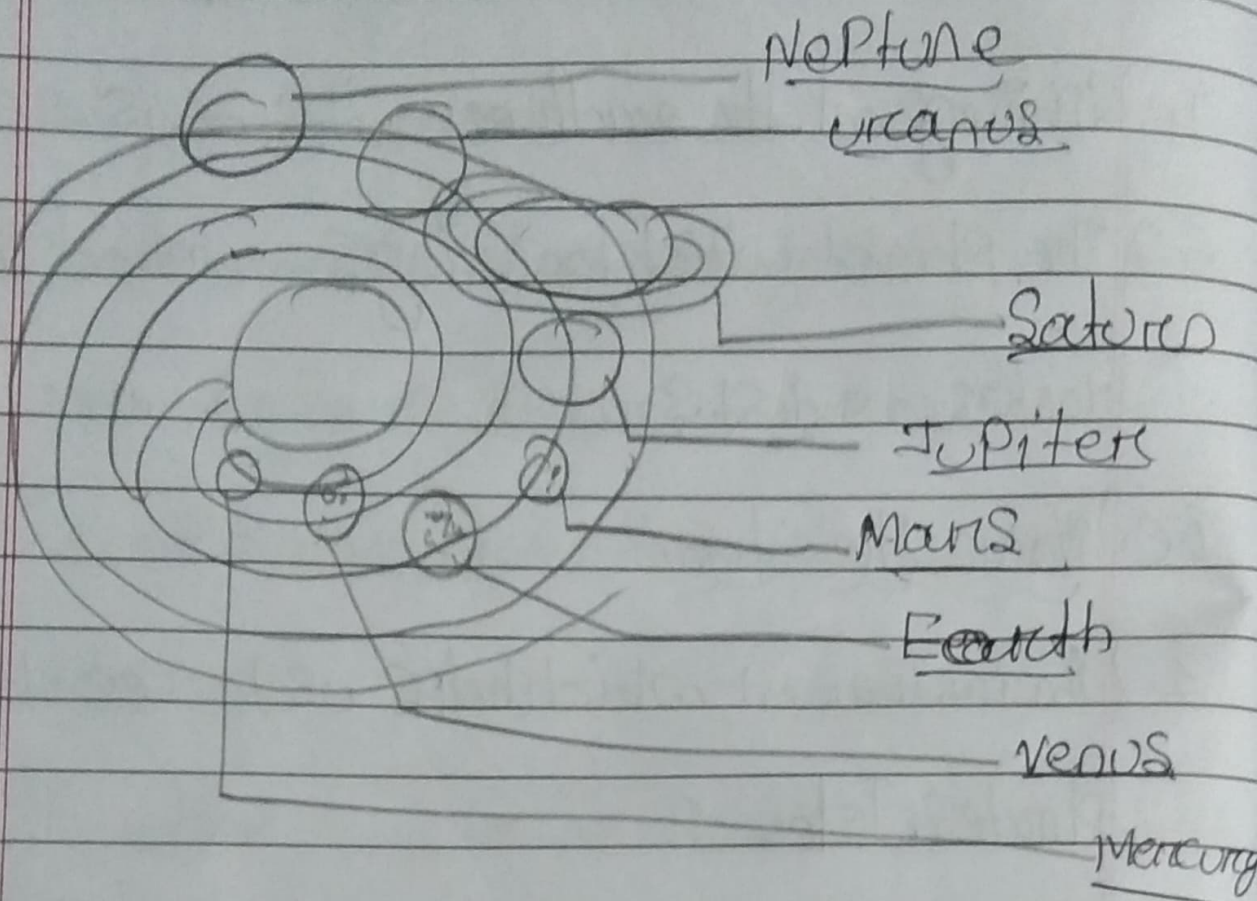 Neptune
uranus
Saturn
Jupiters
Mars
Earth
Venus
Mercury